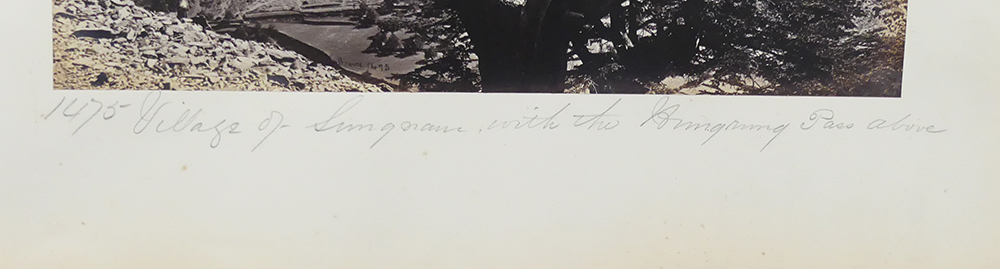 1475
1475 Village of Sungnam, with the Hungrung Pass above